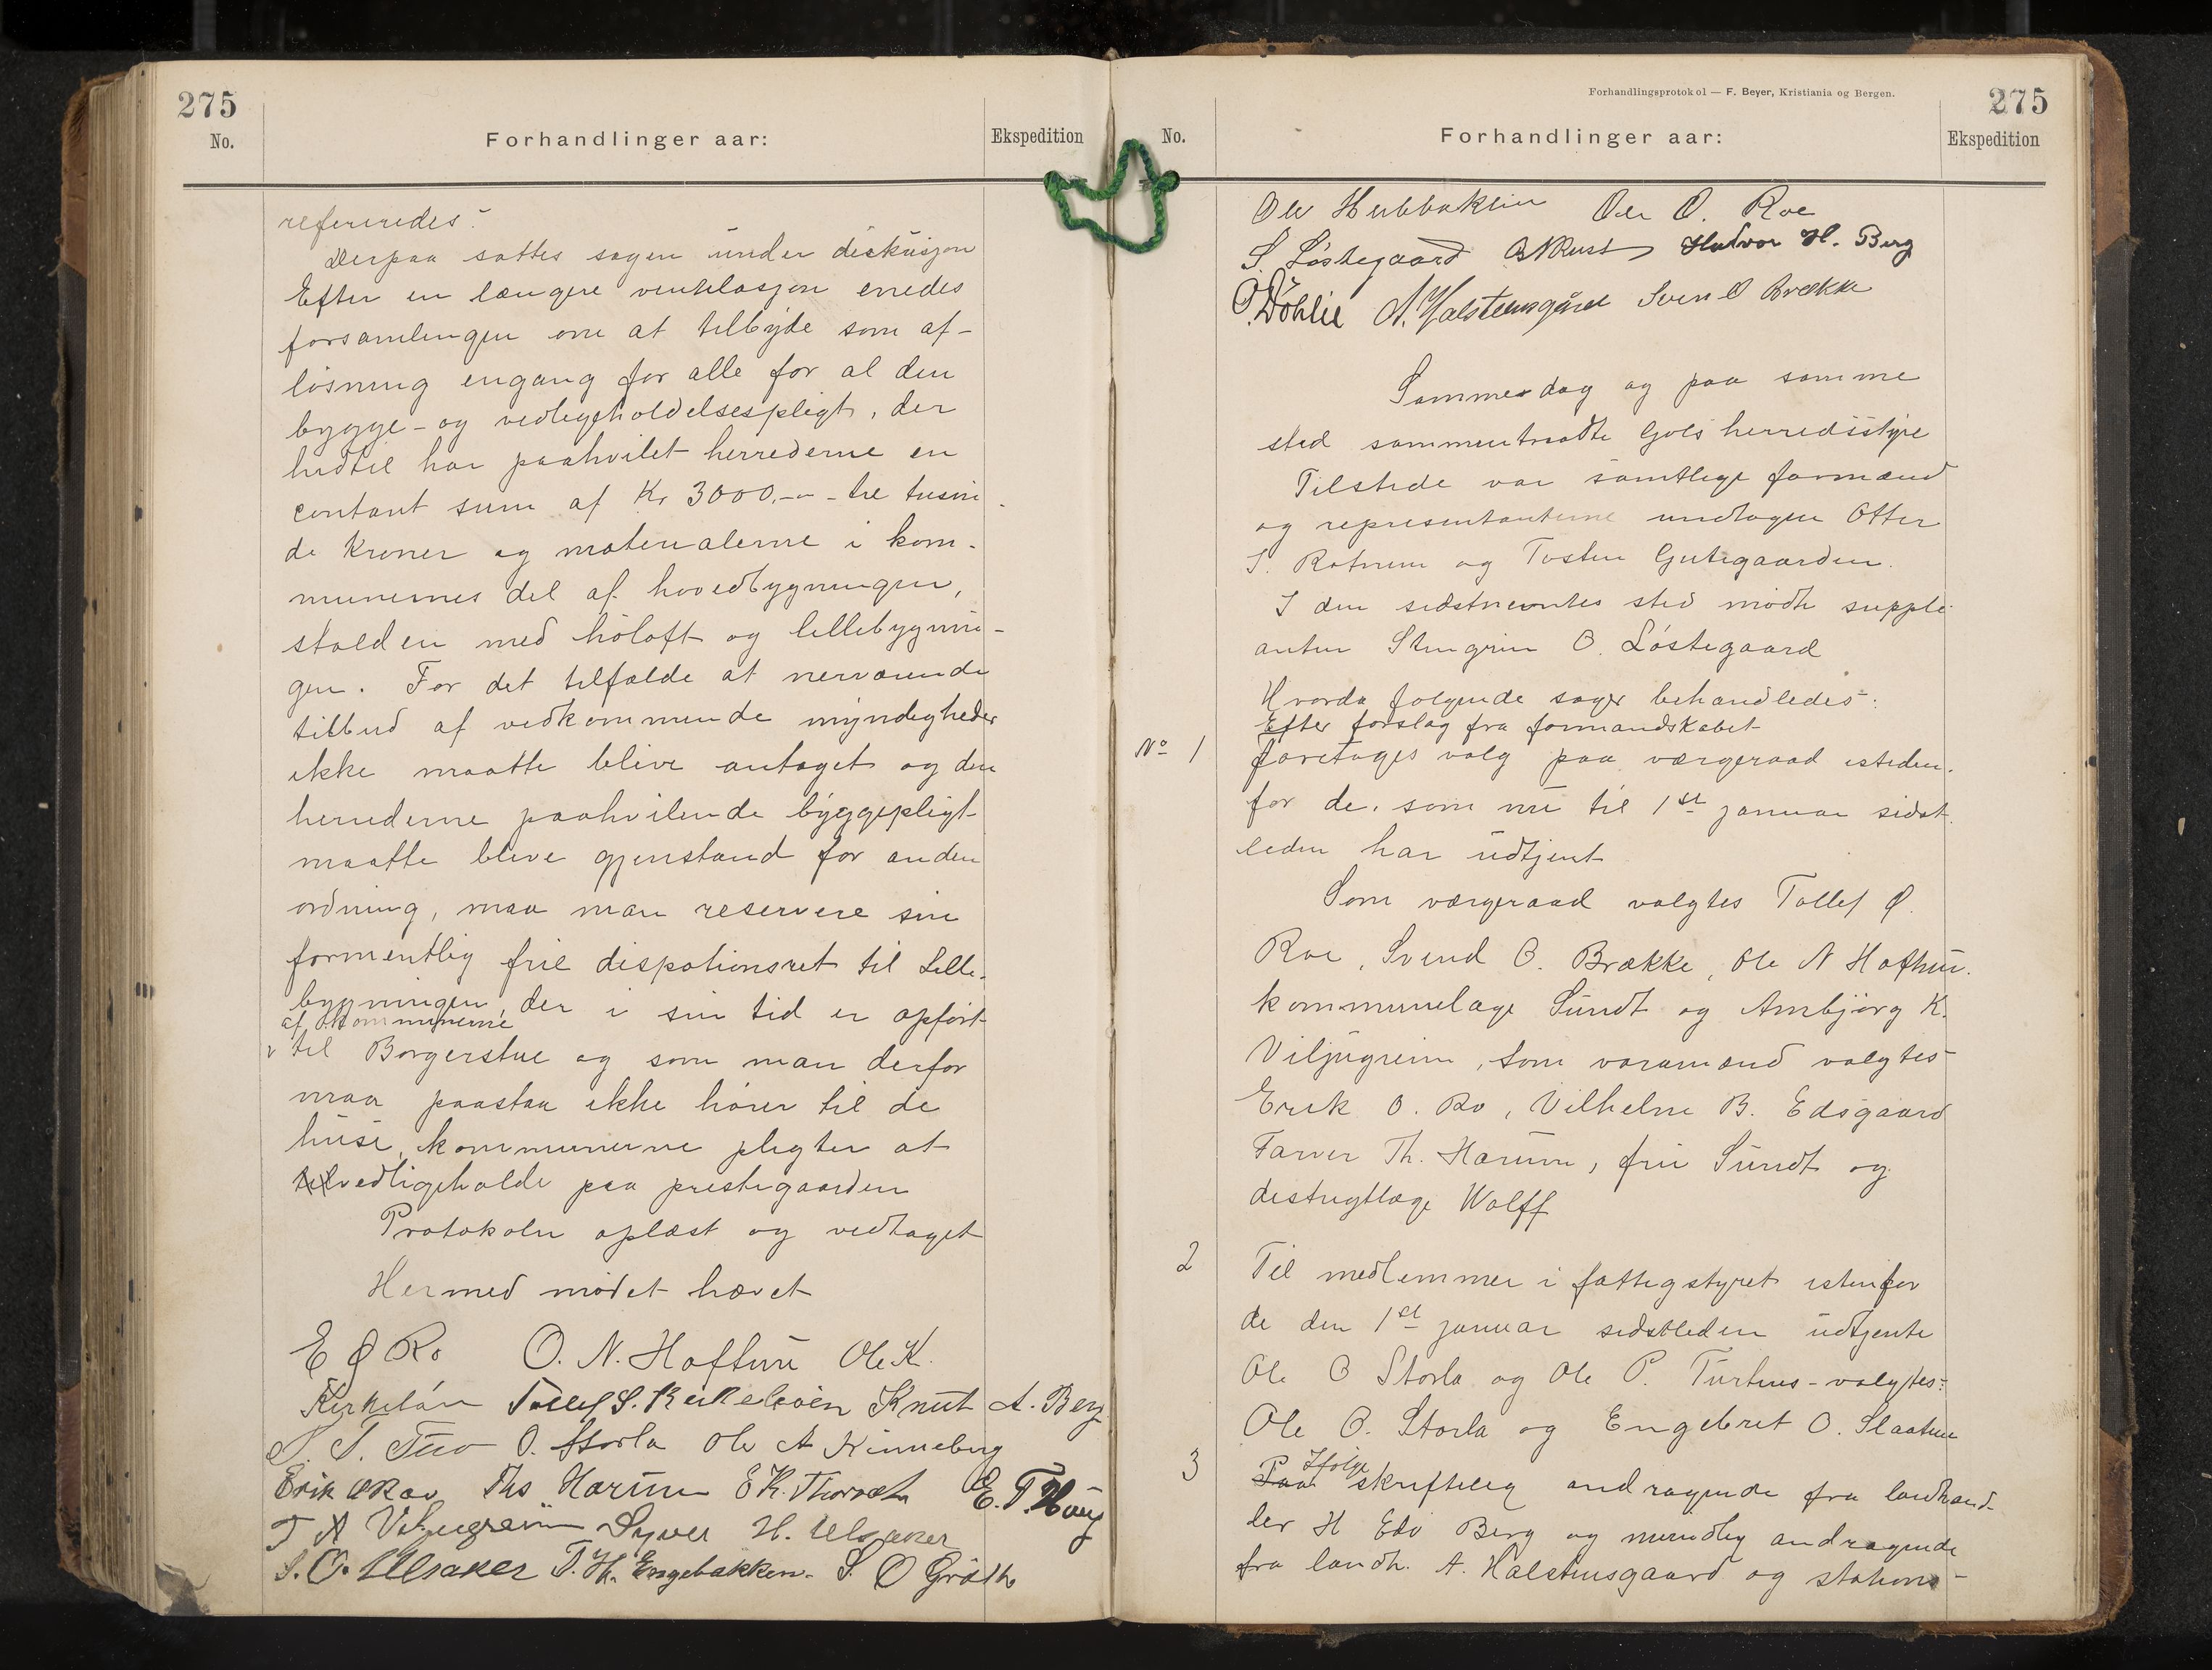 275
No.
Forhandlinger aar:
Ekspedition
refereredes:
Derpaa sattes sagen under diskusjon
Efter en længere ventilasjon enedes
forsamlingen om at tilbyde som af-
løsning engang for alle for al den
bygge- og vedligeholdelsespligt, der
hidtil har paahvilet herrederne en
contant sum af Kr 3000,-- - tre tusin
de Kroner og materialerne i kom-
munernes del af hovedbygningen,
stalden med høloft og lillebygnin-
gen. For det tilfælde at nærværende
tilbud af vedkommende myndigheder
ikke maatte blive antaget og den
herrederne paahvilende byggepligt
maatte blive gjenstand for anden
ordning, maa man reservere sin
formentlig frie dispotionsret til Lille-
bygningen, der i sin tid er opført
af kommunerne
til Borgerstue og som man derfor
maa paastaa ikke hører til de
huse, kommunerne pligter at
vedligeholde paa prestegaarden
Protokolen oplæst og vedtaget
Hermed mødet hævet
E O Ro O. N. Hoftun Ole K.
Kirkeløen Tollef S. Kirkeleøen Knut A. Berg
T. Tuv O. Storla Ole A Kinneberg
Erik O Roe Ths Harum E K. Thorset E. T. Haug
T A Viljugrein Syver H. Ulsaker
S. O. Ulsaker T. H. Engebakken. S. O Grøth
Forhandlingsprotokol — F. Beyer, Kristiania og Bergen.
275
No.
Forhandlinger aar:
Ekspedition
Ole Hubbakken Ole O. Roe
S. Løstegaard Rust Halvor H. Berg
O. Døhlie A. Halstensgård Sven O Brække
Sammedag og paa samme
sted sammentraadte Gols herredsstyre
Tilstede var samtlige formænd
og representanterne undtagen Otter
S. Rotneim og Tosten Gutegaarden.
I den sidstnevntes sted mødte supple-
anten Stengrim O. Løstegaard
Hvorda følgende sager behandledes:
Efter forslag fra formandskabet
No 1
foretages valg paa værgeraad isteden-
for de, som nu til 1st januar sidst-
leden har udtjent
Som værgeraad valgtes Tollef O.
Roe, Svend O. Brække, Ole N Hoftun.
kommunelæge Sundt og Ambjørg K.
Viljugrein, Som varamænd valgtes
Erik O. Ro, Vilhelm B. Edsgaard
Farver Th. Harum, fru Sundt og
distrigtlæge Wolff
2
Til medlemmer i fattigstyret istenfor
de den 1st januar sidstleden udtjente
Ole O Storla og Ole P. Turhus - valgtes:
Ole O. Storla og Engebret O. Slaatun
3
Ifølge
Paa skriftlig andragende fra landhand-
ler H Edv Berg og mundtlig andragende
fra landh. A. Halstensgaard og stations-